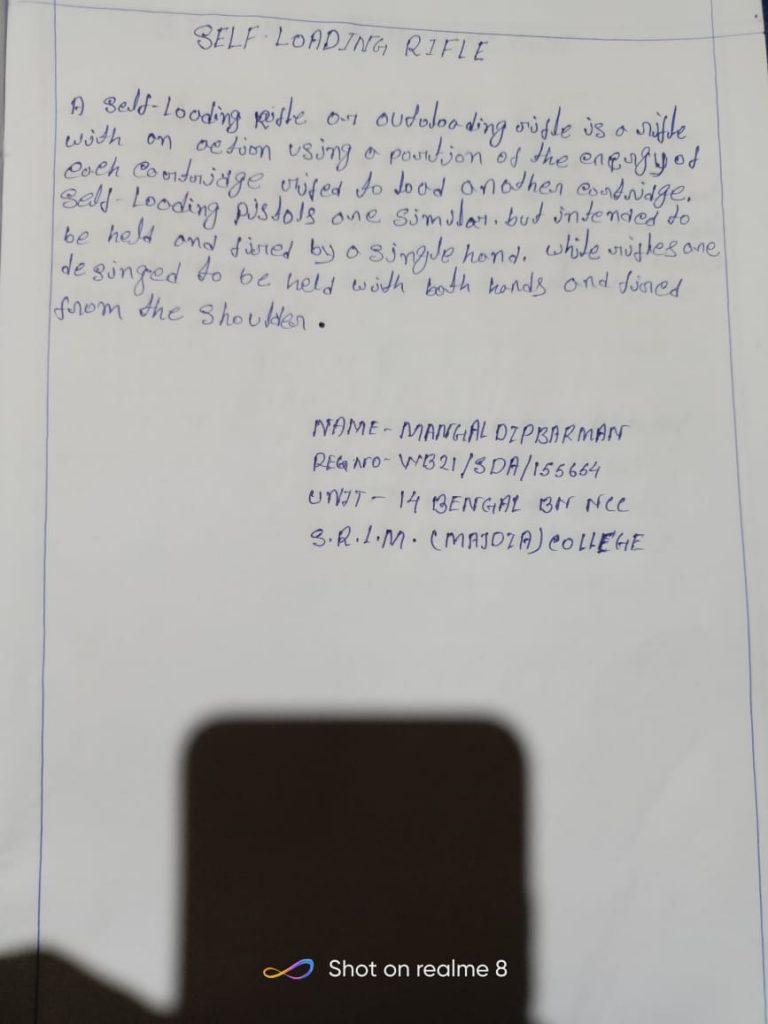 SELF-LOADING RIFLE
A Self-Loading rifle or autoloading rifle is a rifle
with an action using a portion of the energy of
each cartridge fired to load another cartridge.
Self-Loading pistols are similar. but intended to
be held and fired by a single hand. while rifles are
desinged to be held with both hands and fired
from the shoulder.
NAME- MANGALDIPBARMAN
REG NO- WB21/SDA/155664
UNIT- 14 BENGAL BN NCC
S.R.L.M. (MAJDIA) COLLEGE
Shot on realme 8